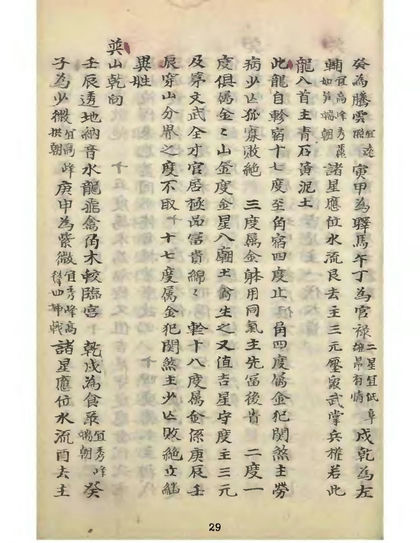 癸為騰雲宜遠揖朝 寅甲為驛馬午丁為官祿二星宜低昂有情 戌乾為左
輔宜高峰秀麗如笋端朝 諸星應位水流艮去主三元屢襄武掌兵權若此
龍入首主青石黃泥土
此龍自軫宿十七度至角宿四度止 角四度屬金犯関煞主勞
病少亡孤寡敗絕 三度屬金躰用同氣主先富後貴 二度一
度俱屬金山金度金星入廟土畜生之又值吉星守度主三元
及第文武全才官居極品富貴綿綿 軫十八度屬金係庚辰壬
辰穿山分界之度不取 十七度屬金犯関煞主少亡敗絕立繼
異姓
巽山乾向
壬辰透地納音水龍飛禽角木較臨宮 乾戌為食祿宜秀峰端朝 癸
子為少微宜高峰拱朝 庚申為紫微宜秀峰高 諸星應位水流酉去主
29